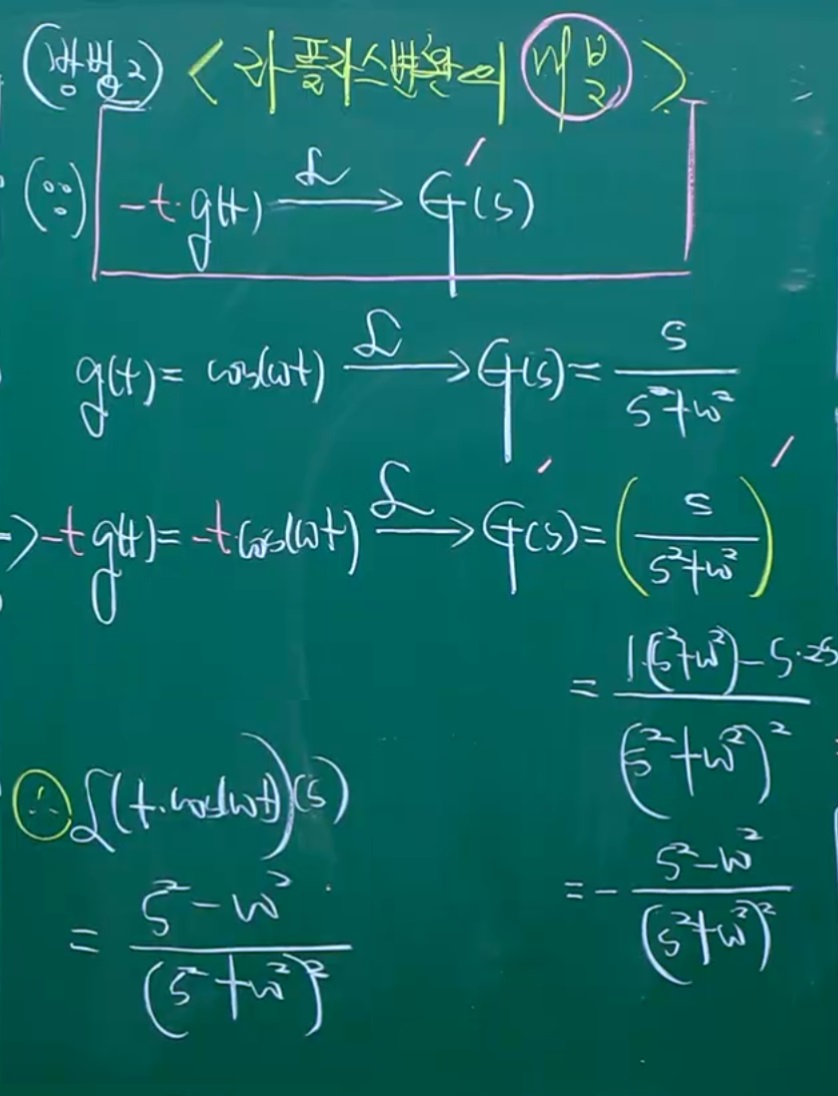 (방법2) <라플라스변환의 미분>
(∵) -t·g(t) ℒ→ G'(s)
g(t) = cos(ωt) ℒ→ G(s) = s/(s²+ω²)
-t g(t) = -t cos(ωt) ℒ→ G'(s) = (s/(s²+ω²))'
= (1·(s²+ω²) - s·2s)/(s²+ω²)²
= - (s²-ω²)/(s²+ω²)²
∴ ℒ(t·cos(ωt))(s)
= (s²-ω²)/(s²+ω²)²